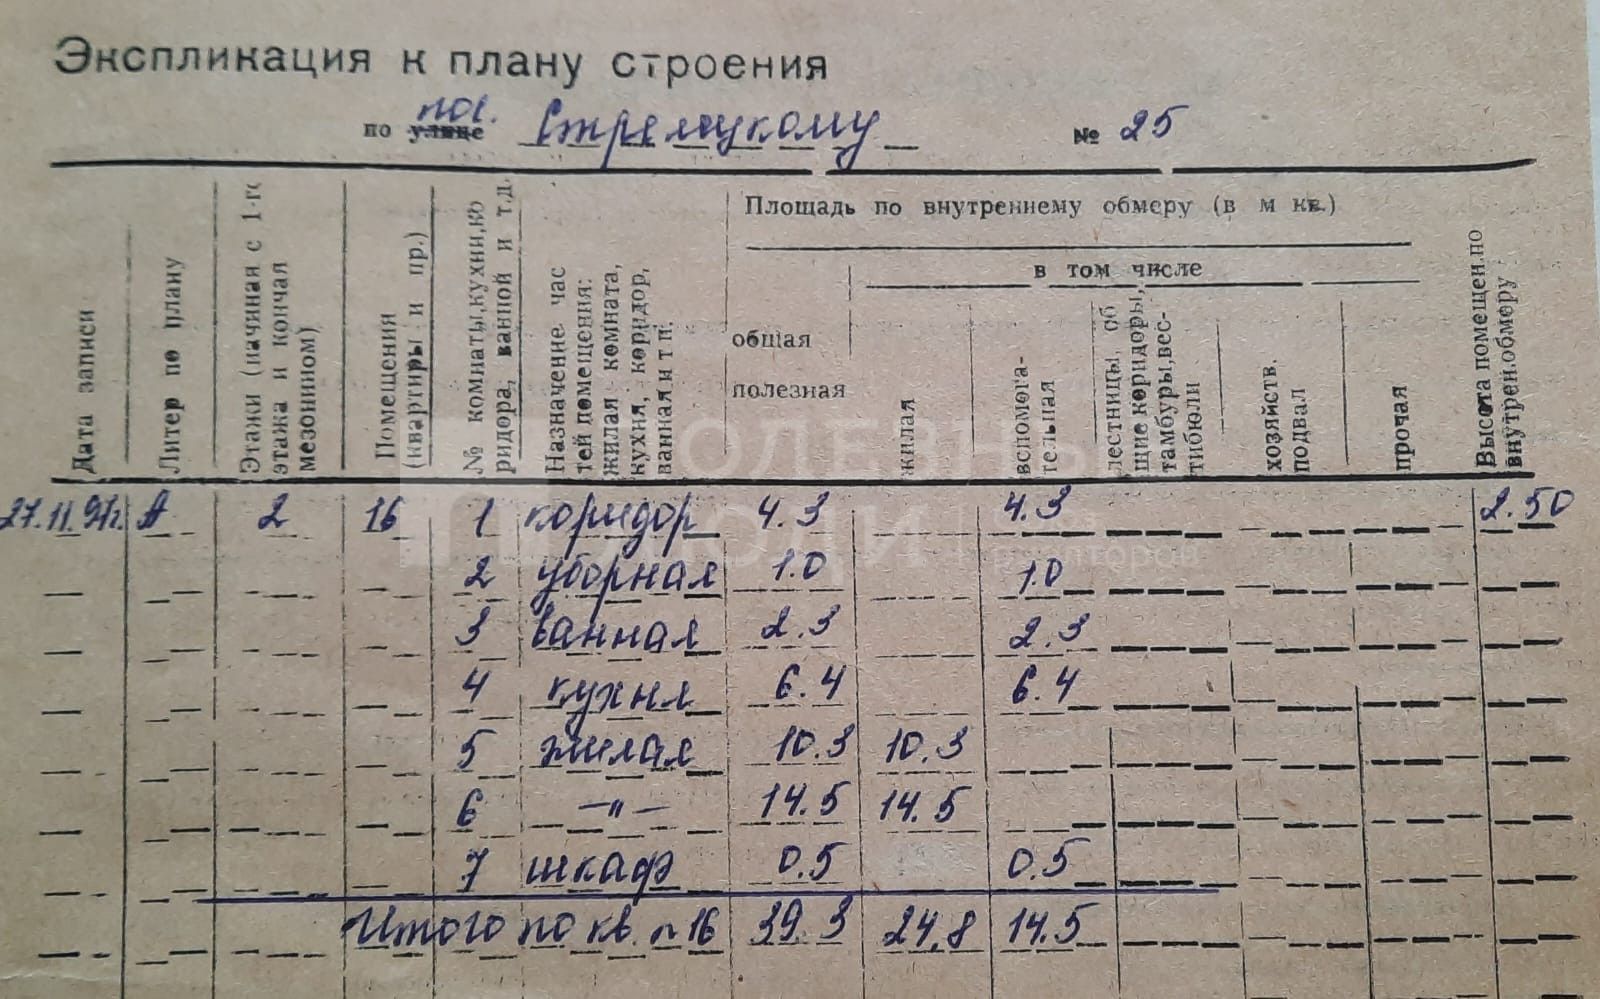 Экспликация к плану строения
пос.
по улице Стрелецкому № 25
Дата записи
Литер по плану
Этажи (начиная с 1-го
этажа и кончая
мезонином)
Помещения
(квартиры и пр.)
№ комнаты,кухни,ко
ридора, ванной и т.д.
Назначение час
тей помещения:
жилая комната,
кухня, коридор,
ванная и т п.
Площадь по внутреннему обмеру (в м кв.)
общая
полезная
в том числе
жилая
вспомога-
тельная
лестницы, об
щие коридоры,
тамбуры,вес-
тибюли
хозяйств.
подвал
прочая
Высота помещен.по
внутрен.обмеру
27.11.97г. А 2 16 1 коридор 4.3 4.3 2.50
2 уборная 1.0 1.0
3 ванная 2.3 2.3
4 кухня 6.4 6.4
5 жилая 10.3 10.3
6 —"— 14.5 14.5
7 шкаф 0.5 0.5
Итого по кв. n 16 39.3 24.8 14.5
ПОЛЕЗНЫЕ
ЛЮДИ